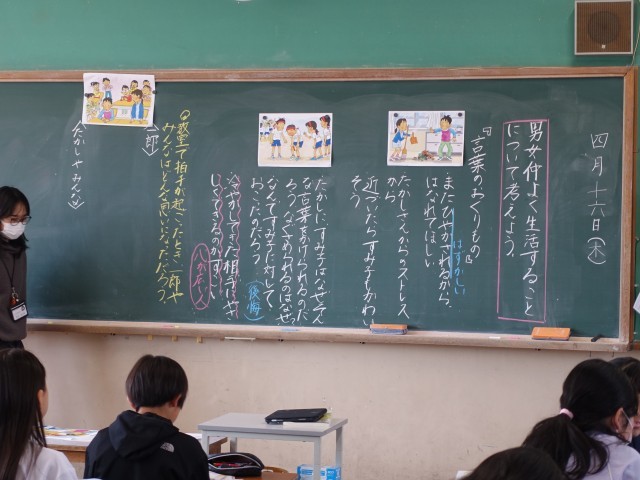 四月十六日(木)
男女仲よく生活すること
について考えよう。
『言葉のおくりもの』
またひやかされるから、
はなれてほしい
はずかしい
たかしさんからのストレス
から
近づいたらすみ子もかわい
そう
たかしに、すみ子はなぜそん
な言葉をかけられるのだ
ろう
なんてすみ子に対して、
おこったのだろう
(後悔)
ひやかしてきた相手にやさ
しくできるのがすごい
◎教室で拍手が起こったとき一郎や
みんなはどんな思いになっただろう。
《一郎》
《たかしやみんな》